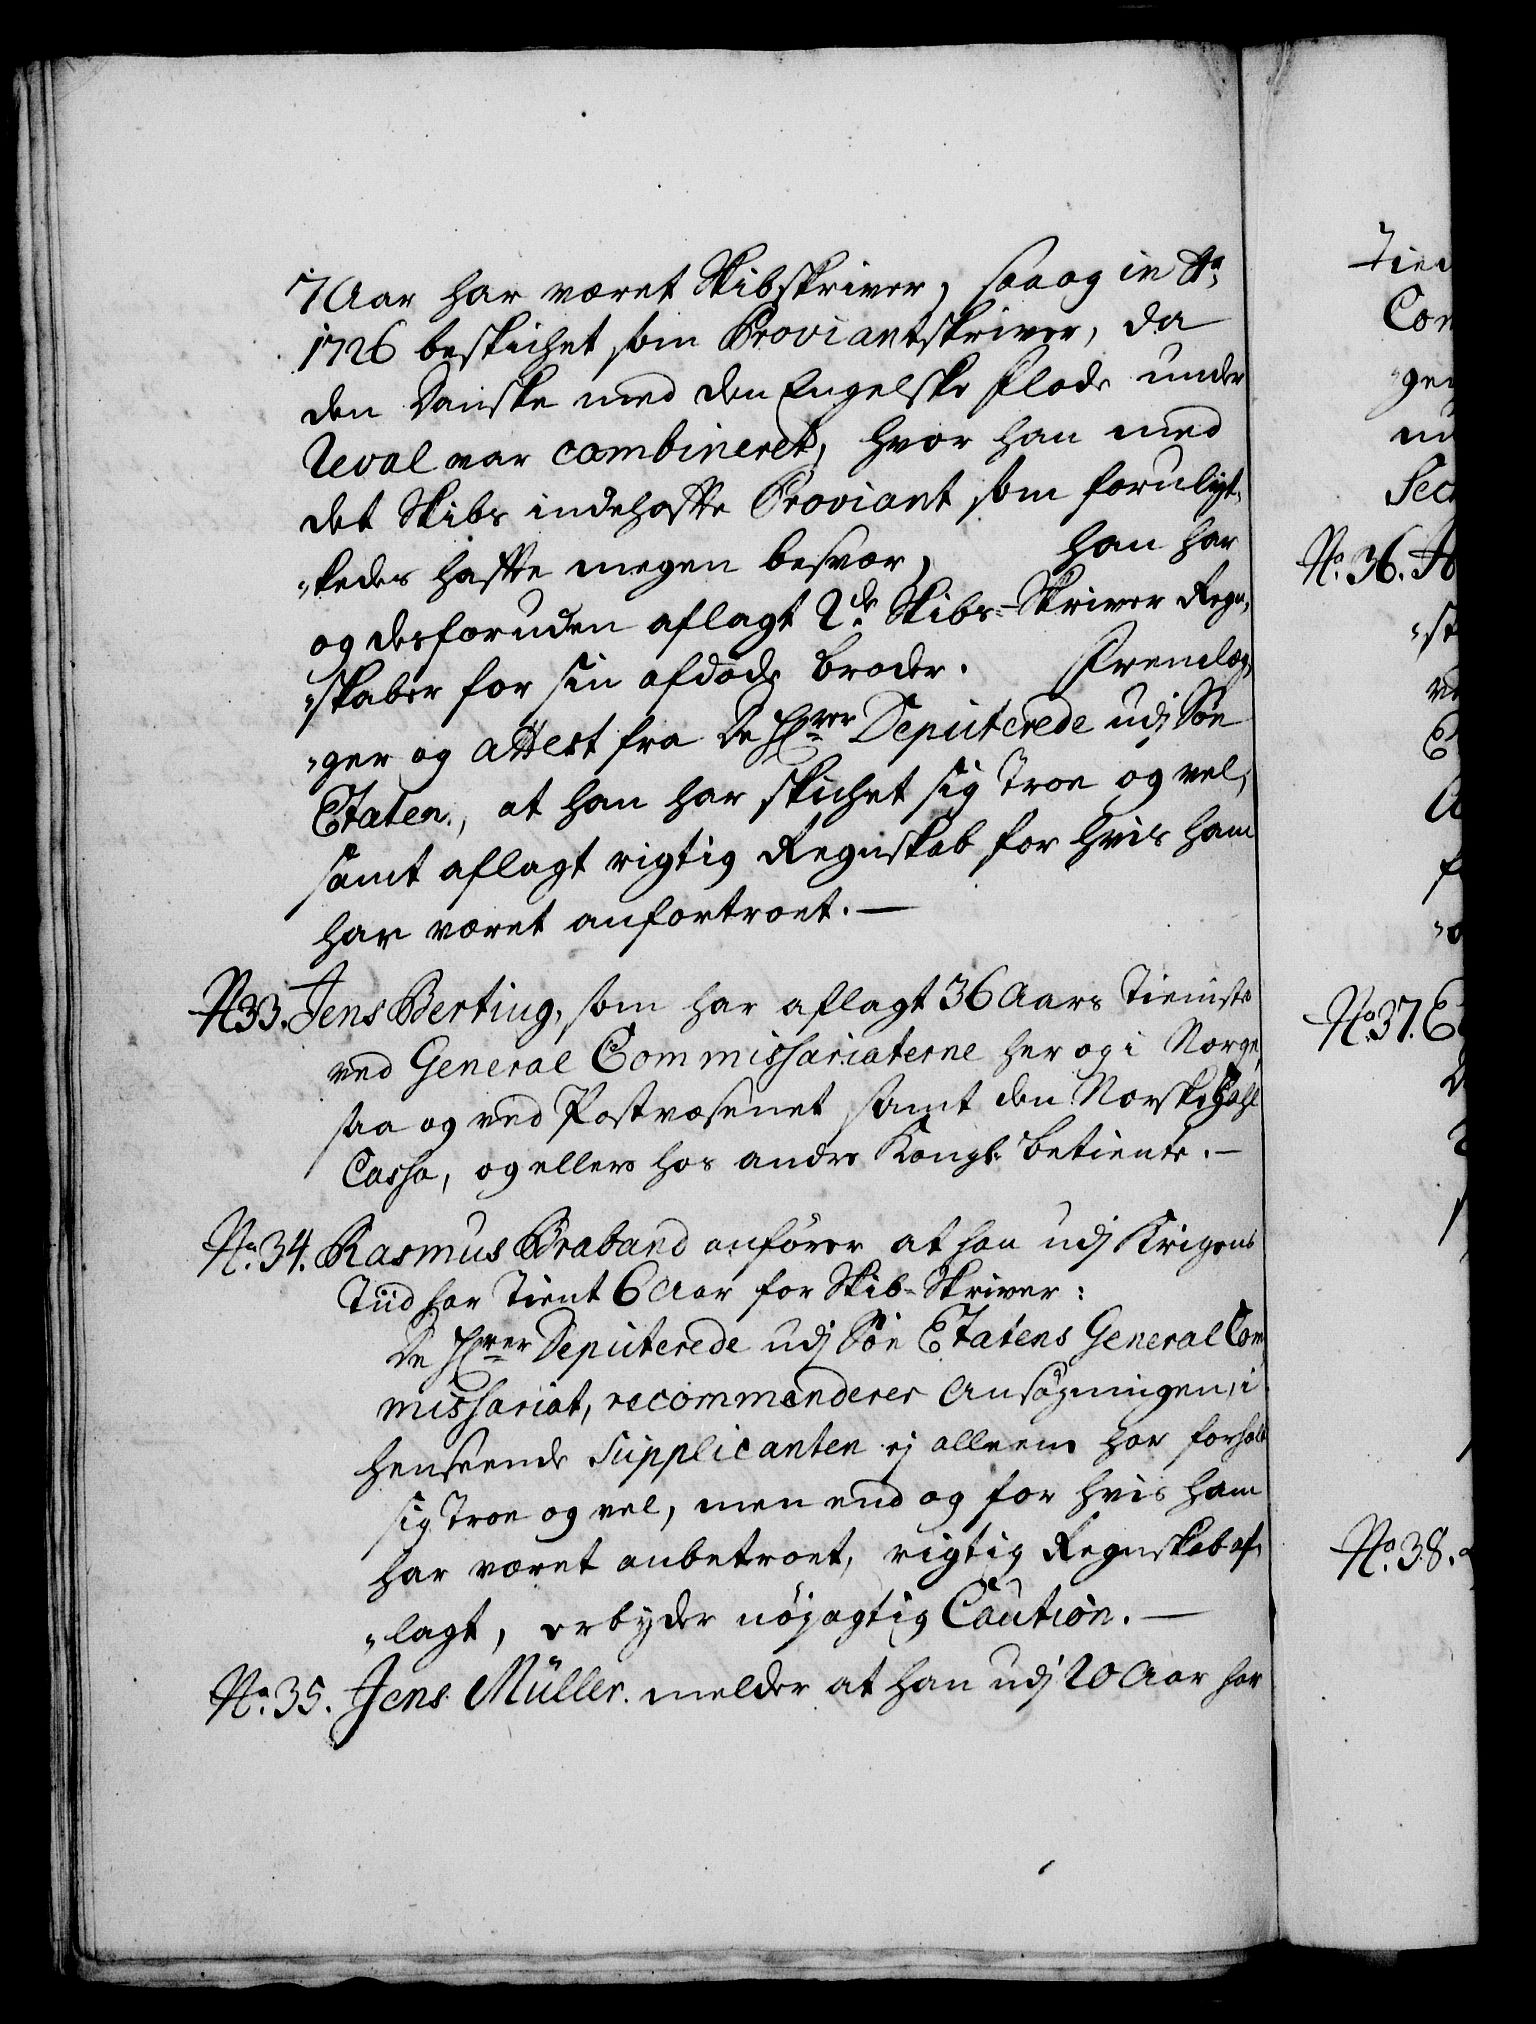 7 Aar har været Skibskriver, saa og in Ao
1726 beskichet som Proviantskriver, da
den Danske med den Engelske Flode under
Reval var combineret, hvor han med
det Skibs indehafte Proviant som foruligt„
„kedes hafte megen besvær, han har
og desforuden aflagt 2de Skibs-Skriver Regn„
„skaber for sin afdøde broder. Fremlæg„
„ger og attest fra De Hrrer Deputerede udj Søe
Etaten, at han har skichet sig troe og vel,
samt aflagt rigtig Regnskab for hvis ham
har været anfortroet. —
No 33. Jens Berting, som har aflagt 36 Aars Tieniste
ved General Commissariaterne her og i Norge,
saa og ved Postvæsenet samt den Norske Zahl
Cassa, og ellers hos andre Kongl: betiente. —
No. 34. Rasmus Braband anfører at han udj Krigens
Tiid har tient 6 Aar for Skib-Skriver:
De Hrrer Deputerede udj Søe Etatens General Com
missariat, recommenderer Ansøgningen, i
henseende Supplicanten ej alleene har forholdt
sig troe og vel, men end og for hvis ham
har været anbetroet, rigtig Regnskab af„
„lagt, erbyder nøjagtig Caution. —
No. 35. Jens Müller melder at han udj 20 Aar har
No. 36.
No. 37.
No. 38.